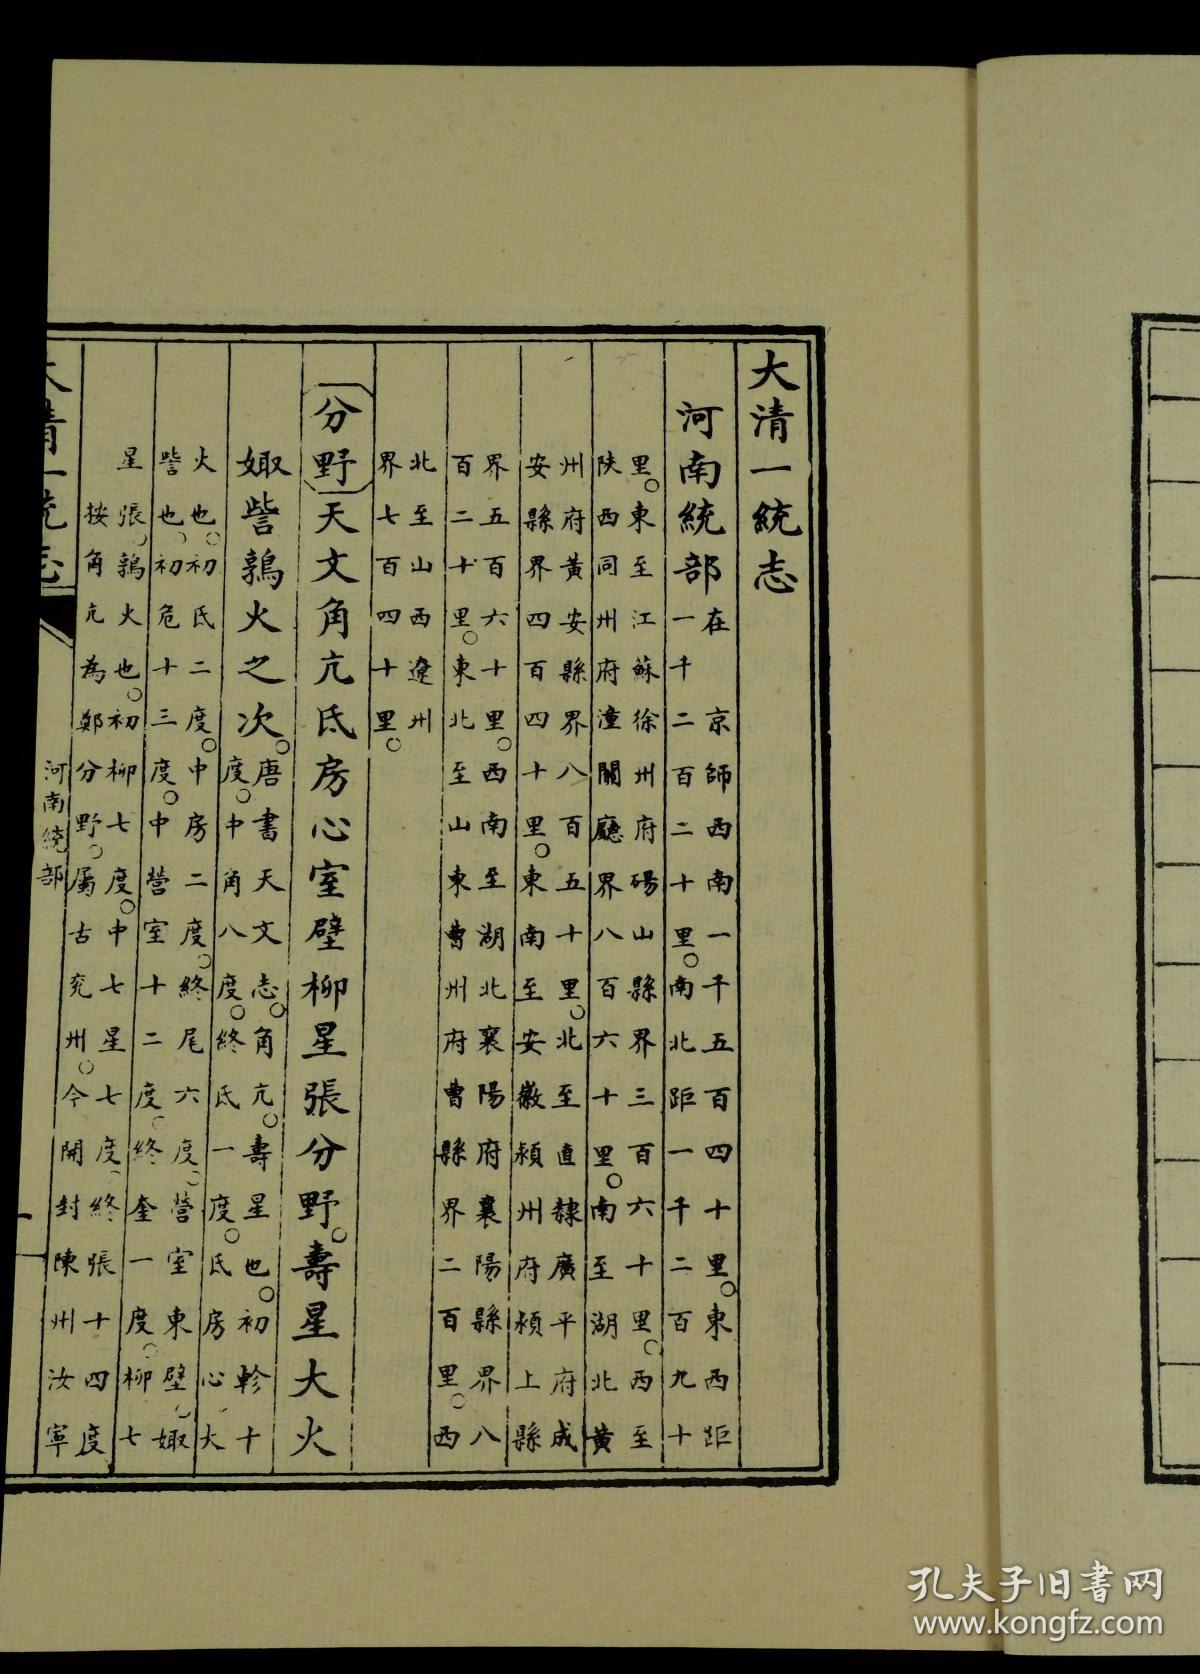 大清一統志
河南統部
在　京師西南一千五百四十里。東西距
一千二百二十里。南北距一千二百九十
里。東至江蘇徐州府碭山縣界三百六十里。西至
陝西同州府潼關廳界八百六十里。南至湖北黃
州府黃安縣界八百五十里。北至直隸廣平府成
安縣界四百四十里。東南至安徽潁州府潁上縣
界五百六十里。西南至湖北襄陽府襄陽縣界八
百二十里。東北至山東曹州府曹縣界二百里。西
北至山西遼州
界七百四十里。
分野 天文角亢氐房心室壁柳星張分野。壽星大火
娵訾鶉火之次。
唐書天文志。角亢。壽星也。初軫十
度。中角八度。終氐一度。氐房心大
火也。初氐二度。中房二度。終尾六度。營室東壁。娵
訾也。初危十三度。中營室十二度。終奎一度。柳七
星張。鶉火也。初柳七度。中七星七度。終張十四度
按角亢為鄭分野。屬古兗州。今開封陳州汝寧
大清一統志
河南統部
一
孔夫子旧书网
www.kongfz.com